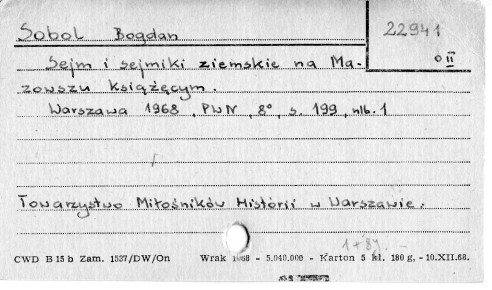 Sobol Bogdan
22941
O II
Sejm i sejmiki ziemskie na Ma-
zowszu książęcym.
Warszawa 1968, PWN, 8°, s. 199, nlb. 1
Towarzystwo Miłośników Histórii w Warszawie.
1+89. -
CWD B-15 b Zam. 1537/DW/On Wrak 1968 - 5.040.000 - Karton 5 kl. 180 g. - 10.XII.68.